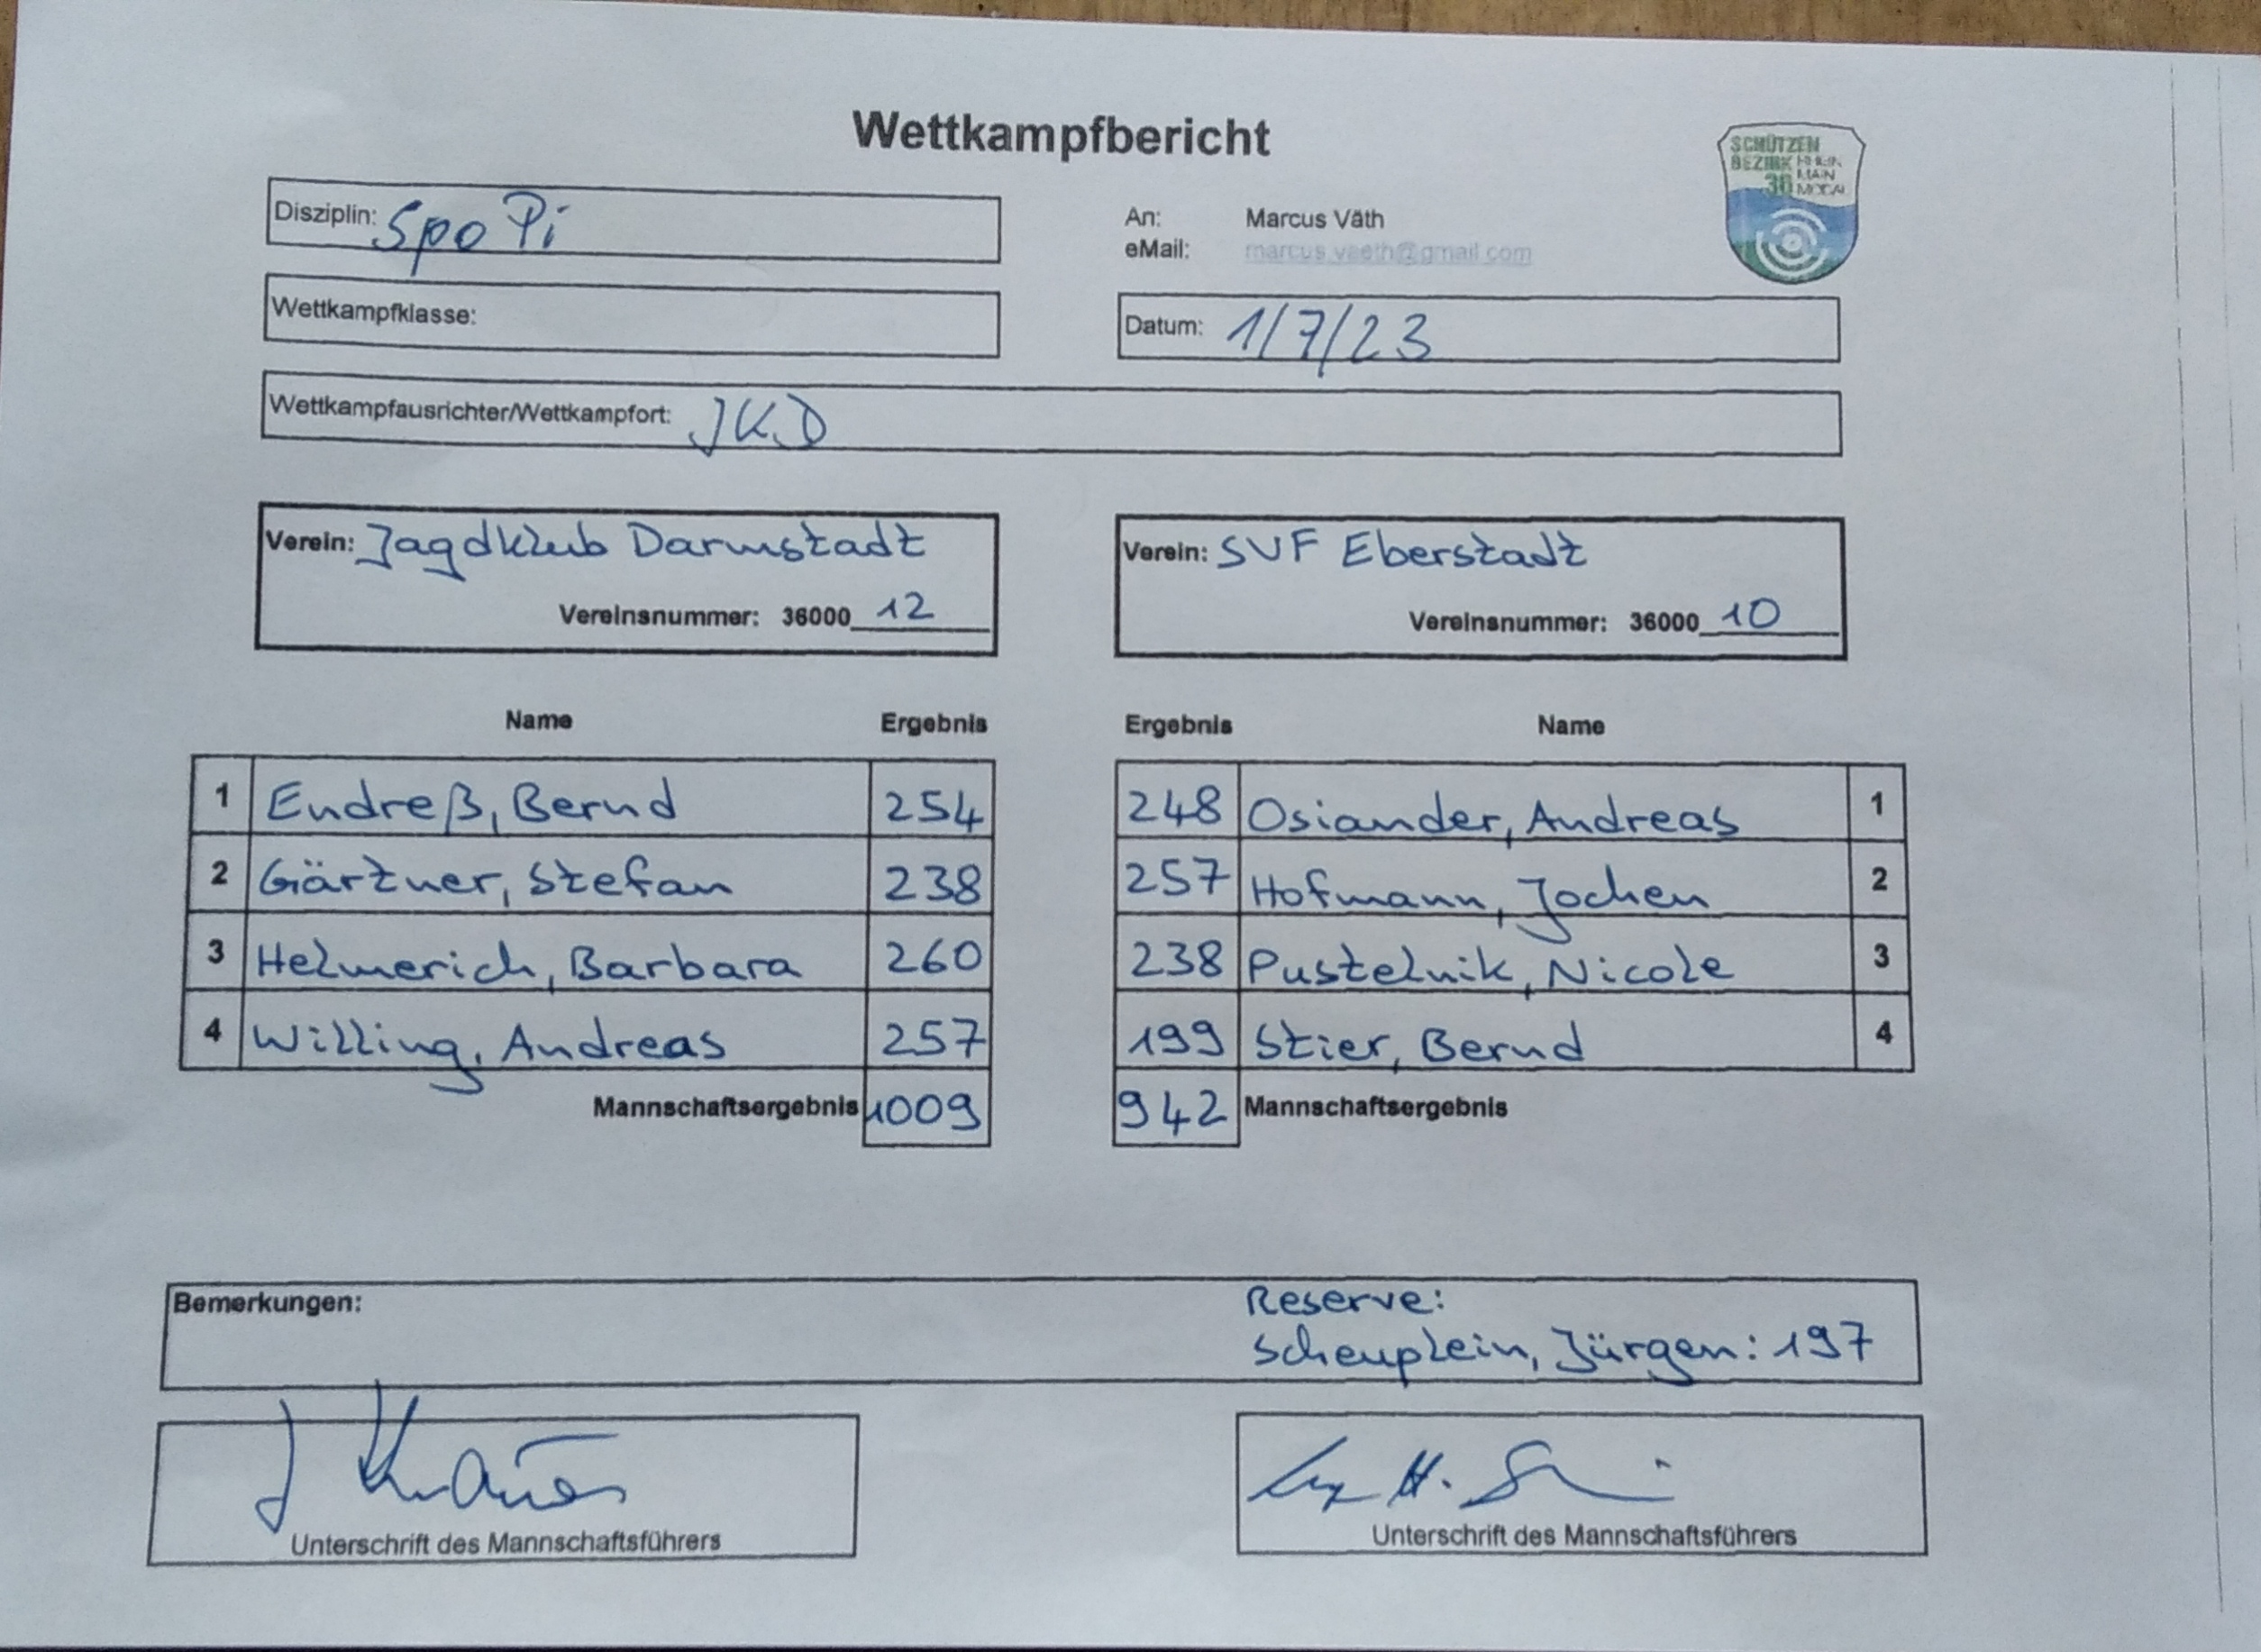 Wettkampfbericht
SCHÜTZEN
BEZIRK RHEIN
MAIN
36
Disziplin: Spo Pi
An: Marcus Väth
eMail: marcus.vaeth@gmail.com
Wettkampfklasse:
Datum: 1/7/23
Wettkampfausrichter/Wettkampfort: JKD
Verein: Jagdklub Darmstadt
Vereinsnummer: 36000 12
Verein: SVF Eberstadt
Vereinsnummer: 36000 10
Name Ergebnis Ergebnis Name
1 Endreß, Bernd 254 248 Osiander, Andreas 1
2 Gärtner, Stefan 238 257 Hofmann, Jochen 2
3 Helmerich, Barbara 260 238 Pustelnik, Nicole 3
4 Willing, Andreas 257 199 Stier, Bernd 4
Mannschaftsergebnis 1009 942 Mannschaftsergebnis
Bemerkungen:
Reserve:
Scheuplein, Jürgen: 197
Unterschrift des Mannschaftsführers
Unterschrift des Mannschaftsführers